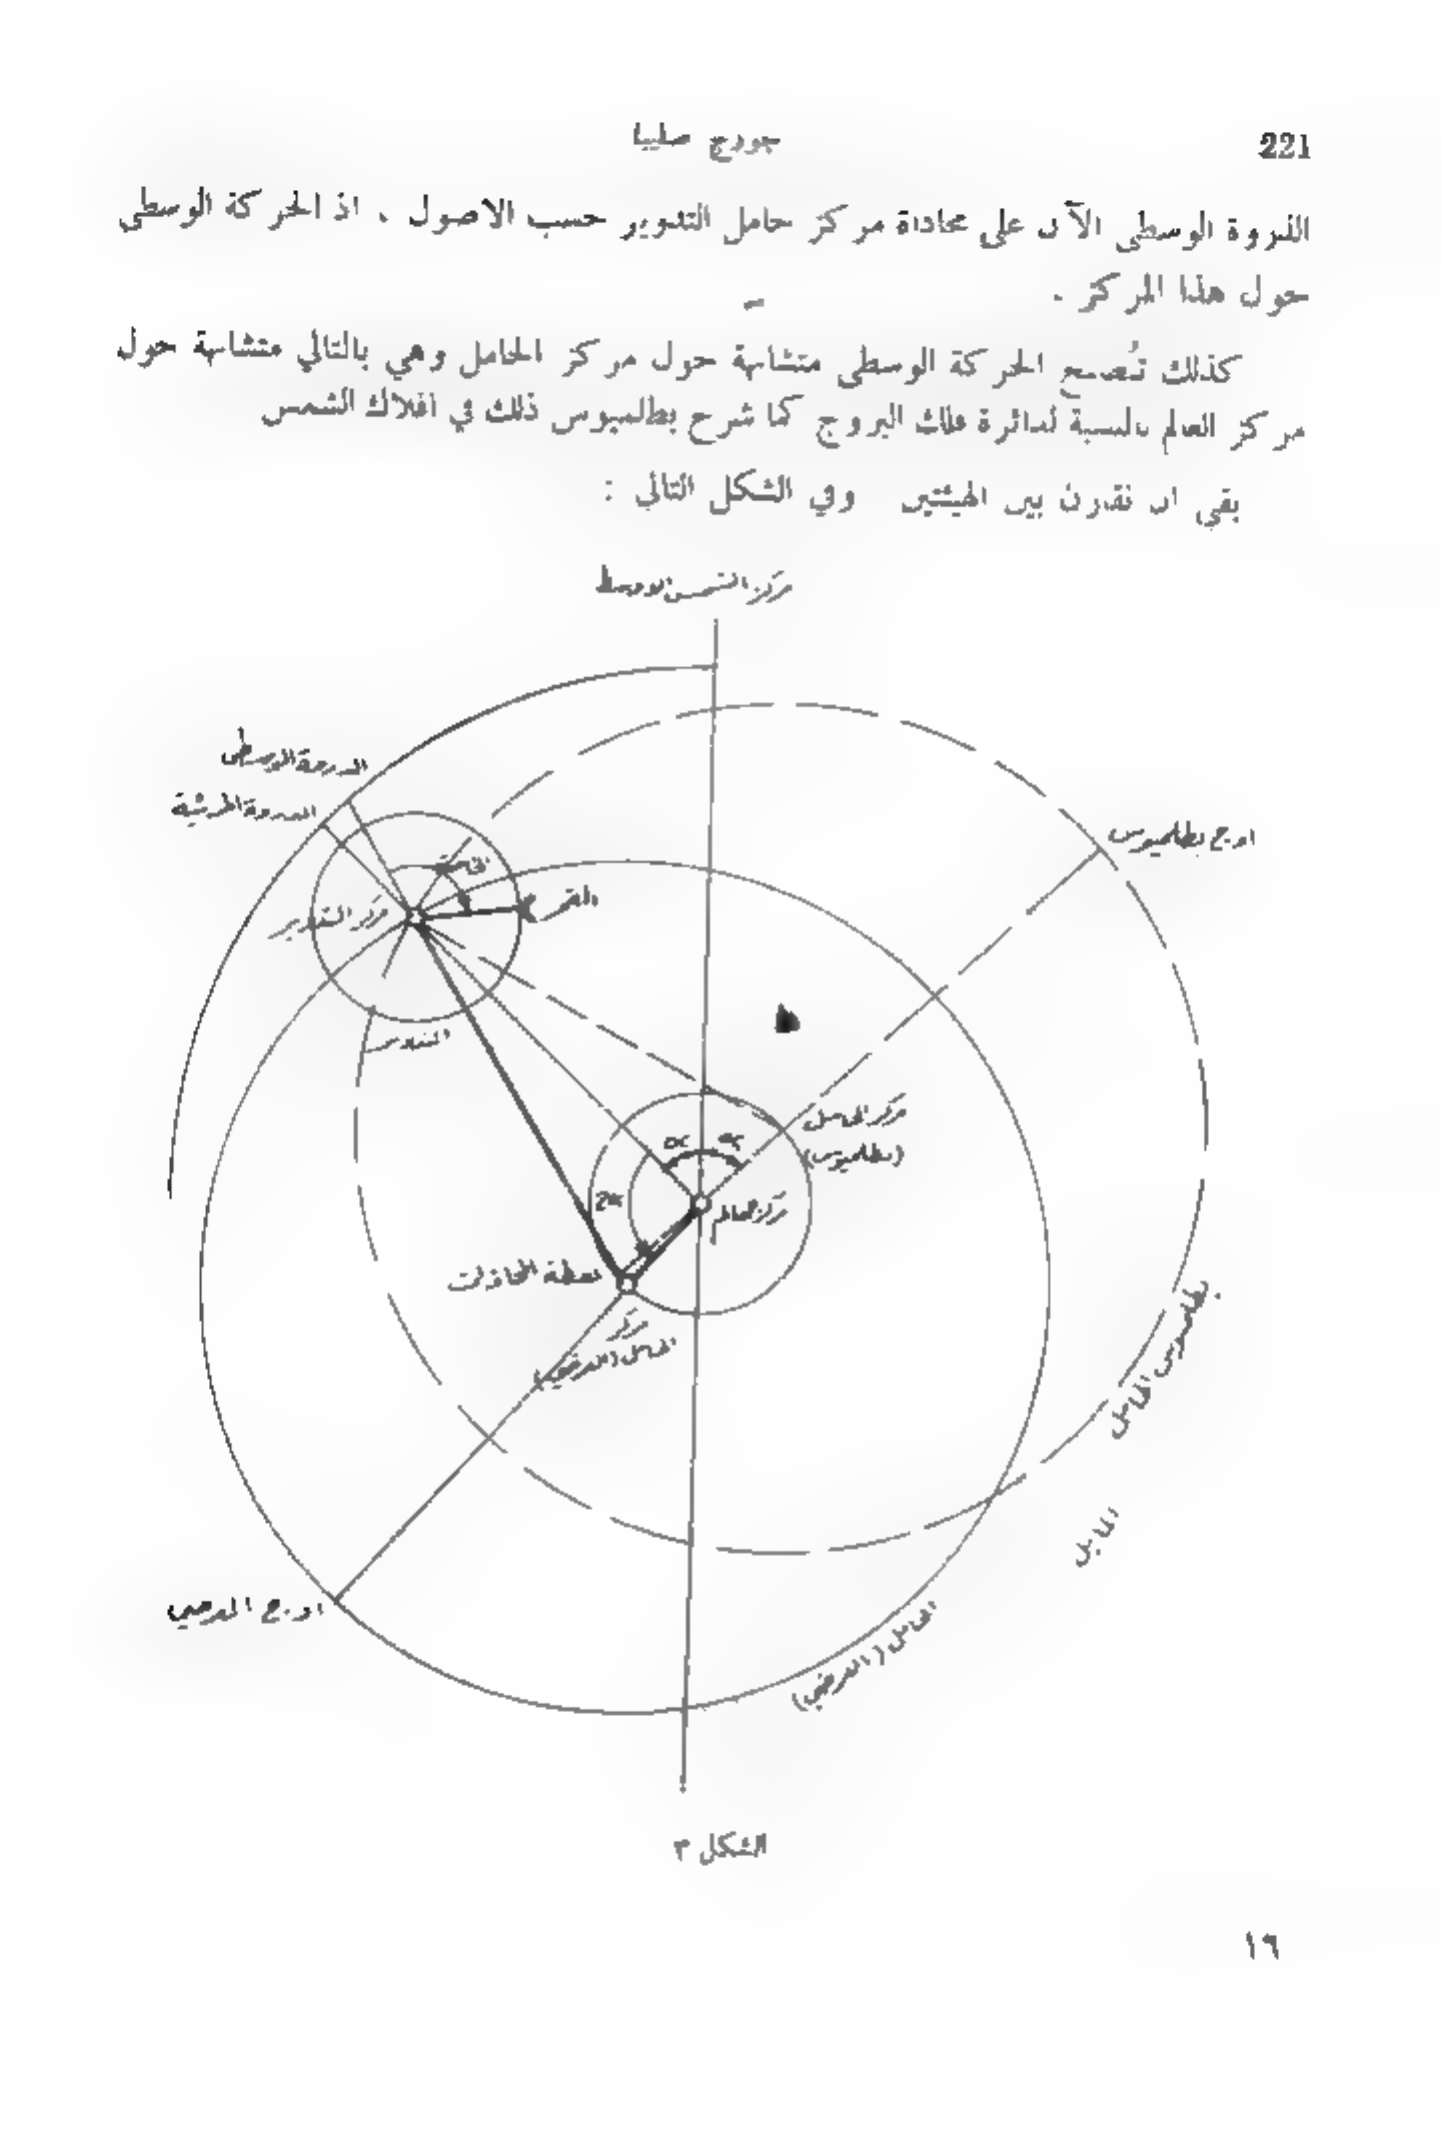 جورج صليبا
221
الذروة الوسطى الآن على محاذاة مركز حامل التدوير حسب الاصول ، اذ الحركة الوسطى
حول هذا المركز .
كذلك تُصبح الحركة الوسطى متشابهة حول مركز الحامل وهي بالتالي متشابهة حول
مركز العالم بالنسبة لدائرة فلك البروج كما شرح بطلميوس ذلك في افلاك الشمس
بقي ان نقارن بين الهيئتين وفي الشكل التالي :
مركز الشمس الاوسط
الذروة الوسطى
الذروة المرئية
اوج بطلميوس
الخاصة
القمر
مركز التدوير
التدوير
مركز الحامل
(بطلميوس)
α α
2α
مركز العالم
نقطة المحاذات
مركز
الحامل (العرضي)
بطلميوس الحامل
اوج العرضي
الحامل (العرضي)
الشكل ٣
١٦